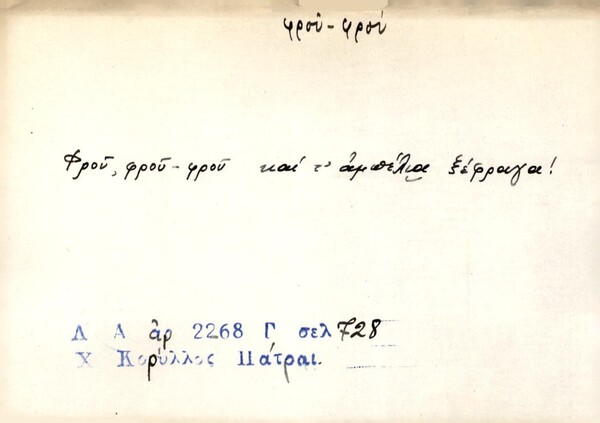 φροῦ-φροῦ
Φροῦ, φροῦ-φροῦ καί τ' ἀμπέλια ξέφραγα!
Λ Α ἀρ 2268 Γ σελ 728
Χ Κορύλλος Πάτραι.